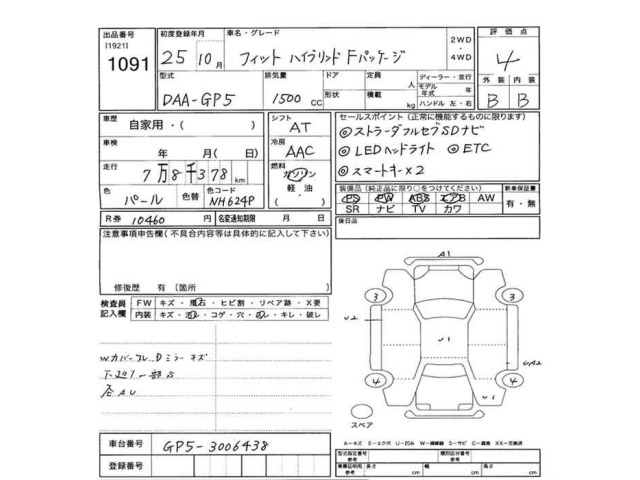 出品番号 初度登録年月 車名・グレード 2WD・4WD 評価点
[1921]
1091 25年10月 フィット ハイブリッド Fパッケージ 4
型式 排気量 ドア 定員 人 ディーラー・並行 外装 内装
モデル年式 年
DAA-GP5 1500CC 形状 積載 kg ハンドル 左・右 B B
車歴 自家用・( ) シフト AT セールスポイント(正常に機能するものに限ります)
車検 年 月(日) 冷房 AAC ◎ストラーダフルセグSDナビ
◎LEDヘッドライト ◎ETC
走行 7万8千378km 燃料 ガソリン・軽油・( ) ◎スマートキー×2
色 パール 色替 色コード NH624P 装備品(純正品に限り○をつけてください) 新車保証書
PS PW ABS エアB AW 有・無
R券 10460 名変通知期限 月 日 SR ナビ TV カワ
注意事項申告欄(不具合内容等は具体的に記入して下さい) 後日品
修復歴 有(箇所 )
検査員記入欄 FW キズ・飛石・ヒビ割・リペア跡・X要
内装 キズ・汚レ・コゲ・穴・凹レ・キレ・破レ
A1
3 3
U2 U1 UA2
4 4
U1
Wカバー Dミラーキズ
下廻り一部S
スペア
A-キズ E-エクボ U-凹み W-補修跡 S-サビ C-腐食 XX-交換済
車台番号 GP5-3006438
型式指定番号 参考 類別区分番号 参考
登録番号 車庫証明用 参考 長さ cm 幅 cm 高さ cm